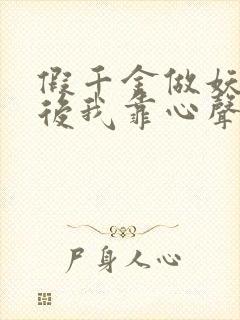 假千金做妖
後我靠心聲
尸身人心